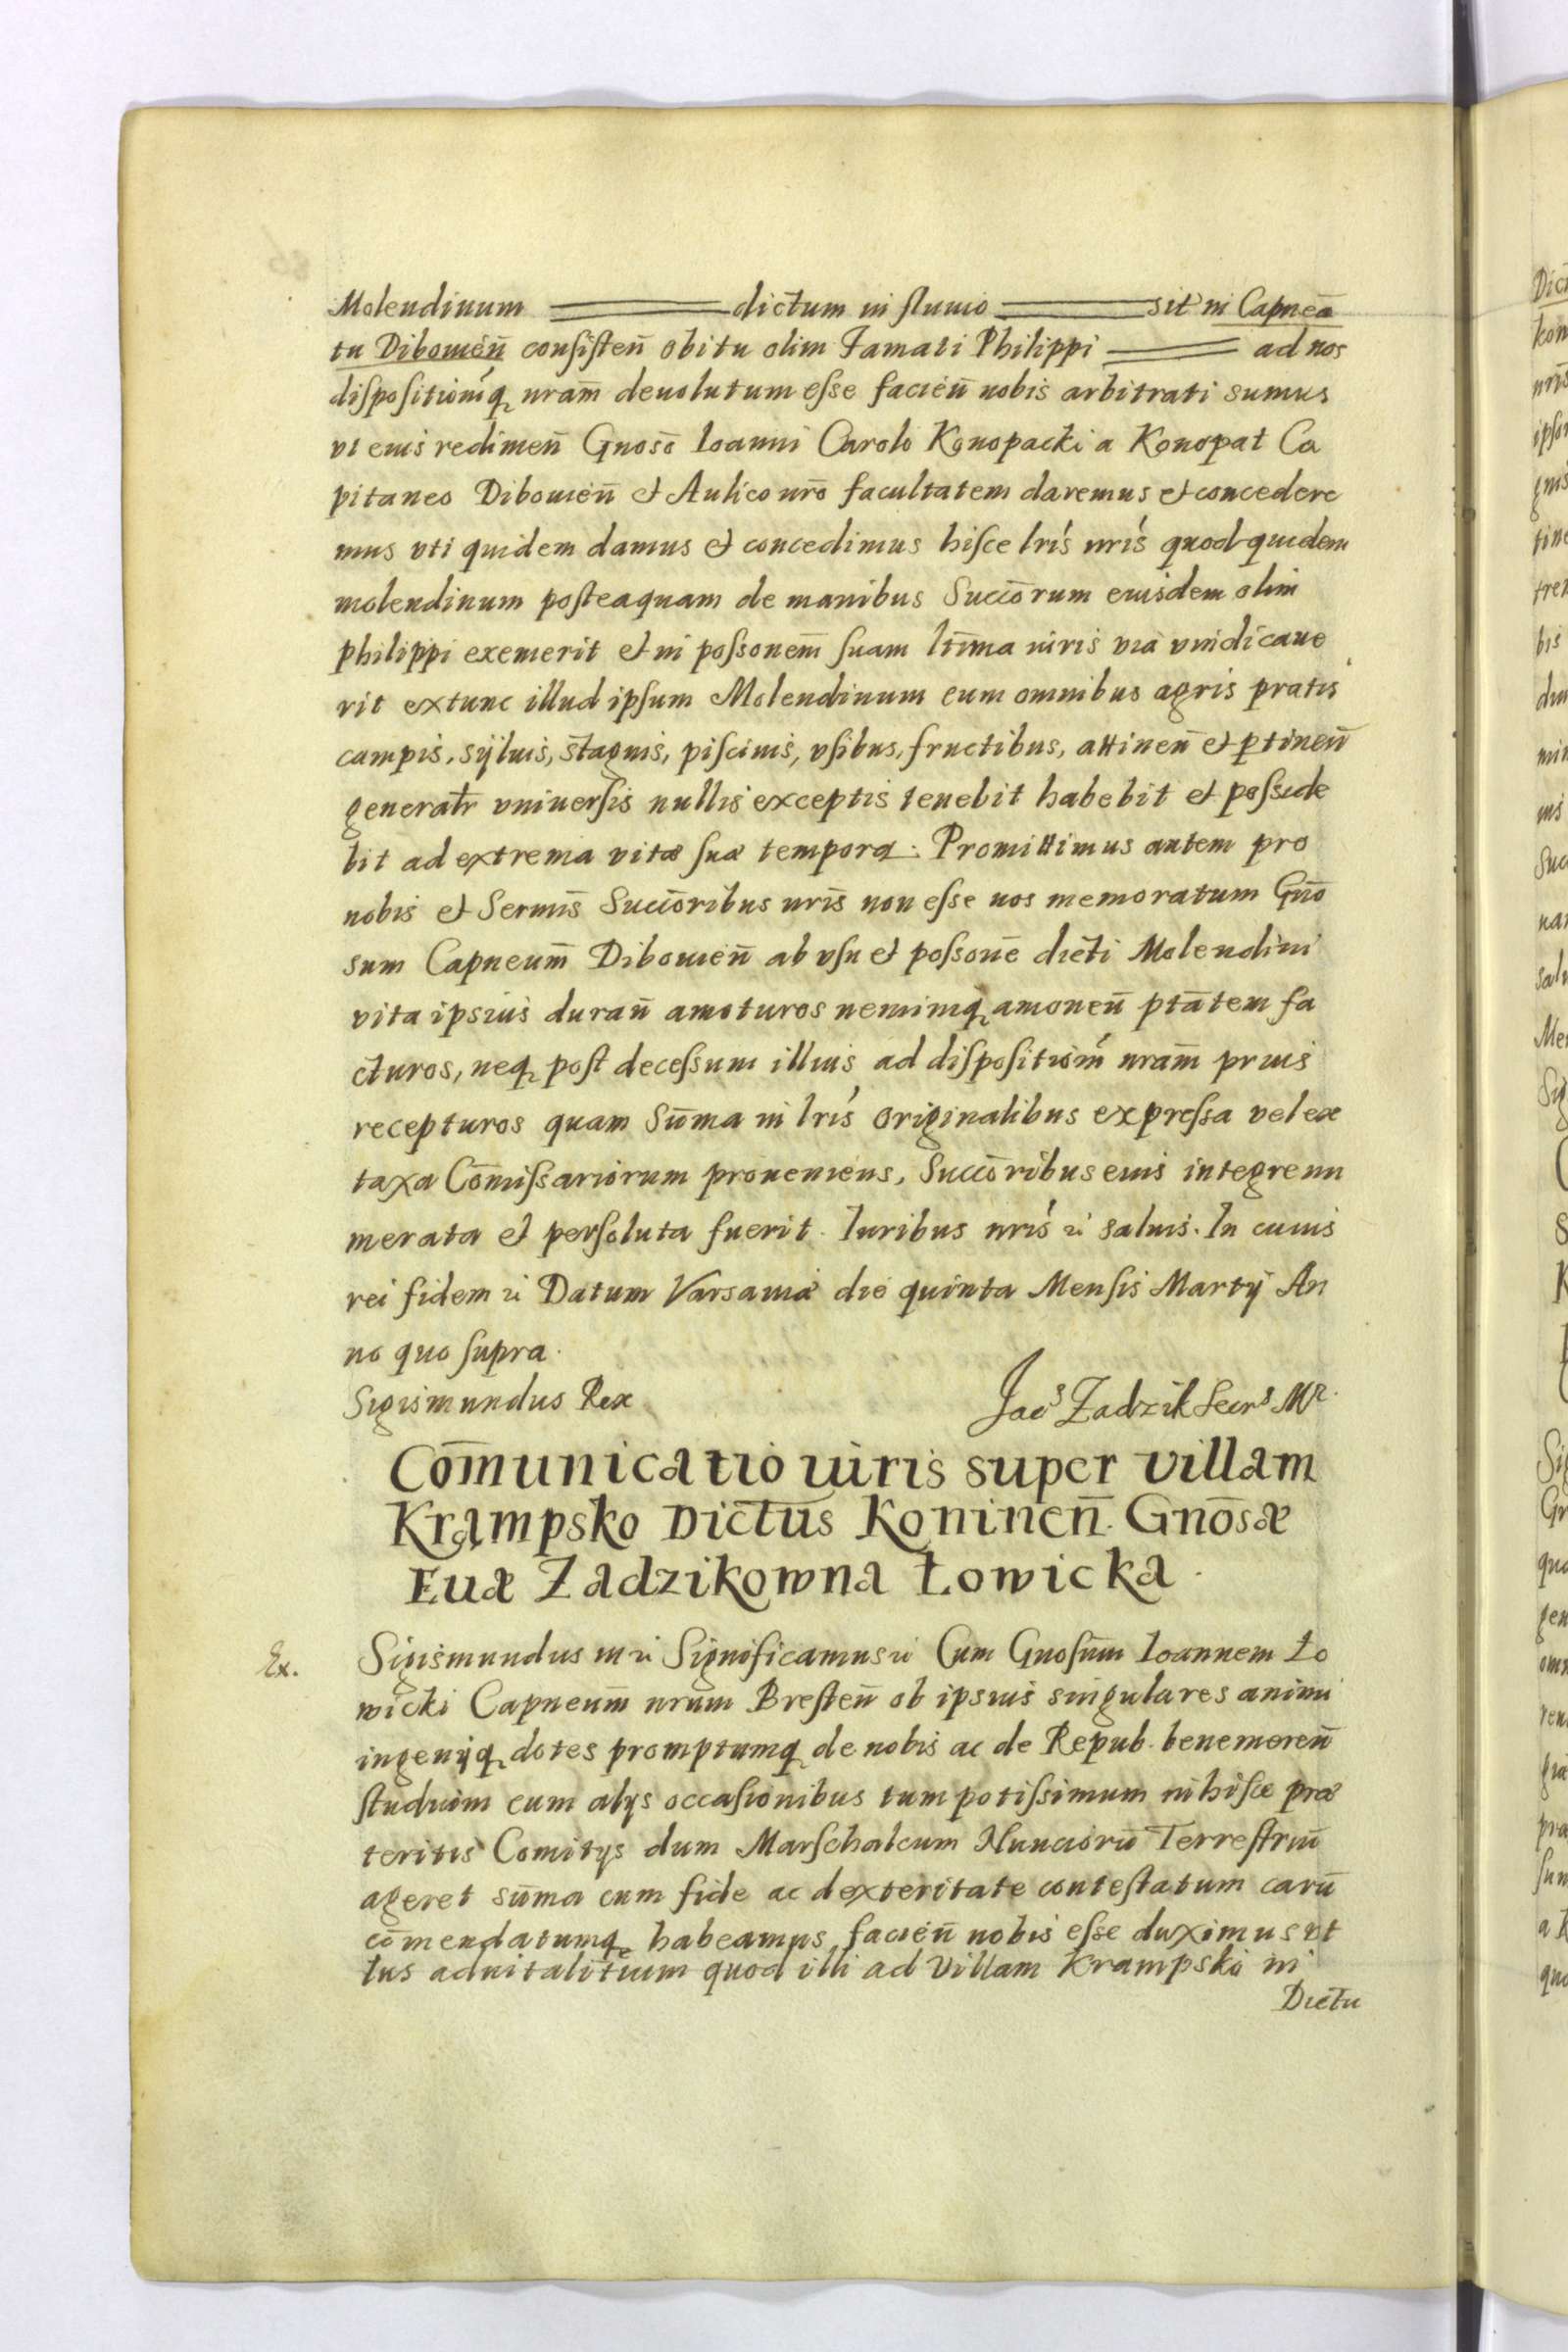 Molendinum ═══ dictum in fluuio ═══ sit in Capnea͞
tu Dibouien̄ consisten̄ obitu olim Famati Philippi ═══ ad nos
dispositionēq, nram̄ deuolutum esse facien̄ nobis arbitrati sumus
vt eius redimen̄ Gnoso̅ Ioanni Carolo Konopacki a Konopat Ca
pitaneo Dibouien̄ et Aulico nro̅ facultatem daremus et concedere
mus vti quidem damus et concedimus hisce lris nris quod quidem
molendinum posteaquam de manibus Succo̅rum eiusdem olim
Philippi exemerit et in possonem̄ suam ltīma iuris via vindicaue
rit extunc illud ipsum Molendinum cum omnibus agris pratis
campis, syluis, stagnis, piscinis, vsibus, fructibus, attinen̄ et ptinen̄
generatr̄ vniuersis nullis exceptis tenebit habebit et posside
bit ad extrema vitæ suæ tempora: Promittimus autem pro
nobis et Sermis̄ Succo̅ribus nris̄ non esse nos memoratum Gno̅
sum Capneum̄ Dibouien̄ ab vsu et possone̅ dicti Molendini
vita ipsius duran̄ amoturos neminiq, amouen̄ pta̅tem fa
cturos, neq, post decessum illius ad dispositiom̄ nram̄ prius
recepturos quam Su̅ma in lris originalibus expressa vel ex
taxa Co̅missariorum proueniens, Succo̅ribus eius integre nu
merata et persoluta fuerit. Iuribus nris &c saluis. In cuius
rei fidem &c Datum Varsauiæ die quinta Mensis Martij An
no quo supra.
Sigismundus Rex
Jacs Zadzik Secrs Mr.
Co̅municatio iuris super villam
Krampsko Dictu̅s Koninen̄. Gno̅sæ
Euæ Zadzikowna Łowicka.
Ex.
Sigismundus III &c Significamus &c Cum Gnosum̄ Ioannem Ło
wicki Capneum̄ nrum̄ Bresten̄ ob ipsius singulares animi
ingenijq, dotes promptumq, de nobis ac de Repub. benemeren̄
studium cum alijs occasionibus tum potissimum in hisce præ
teritis Comitijs dum Marschalcum Nuncioru̅ Terrestriu̅
ageret su̅ma cum fide ac dexteritate contestatum caru̅
co̅mendatumq, habeamus, facien̄ nobis esse duximus vt
Ius aduitalitium quod illi ad Villam Krampsko in
Dictu